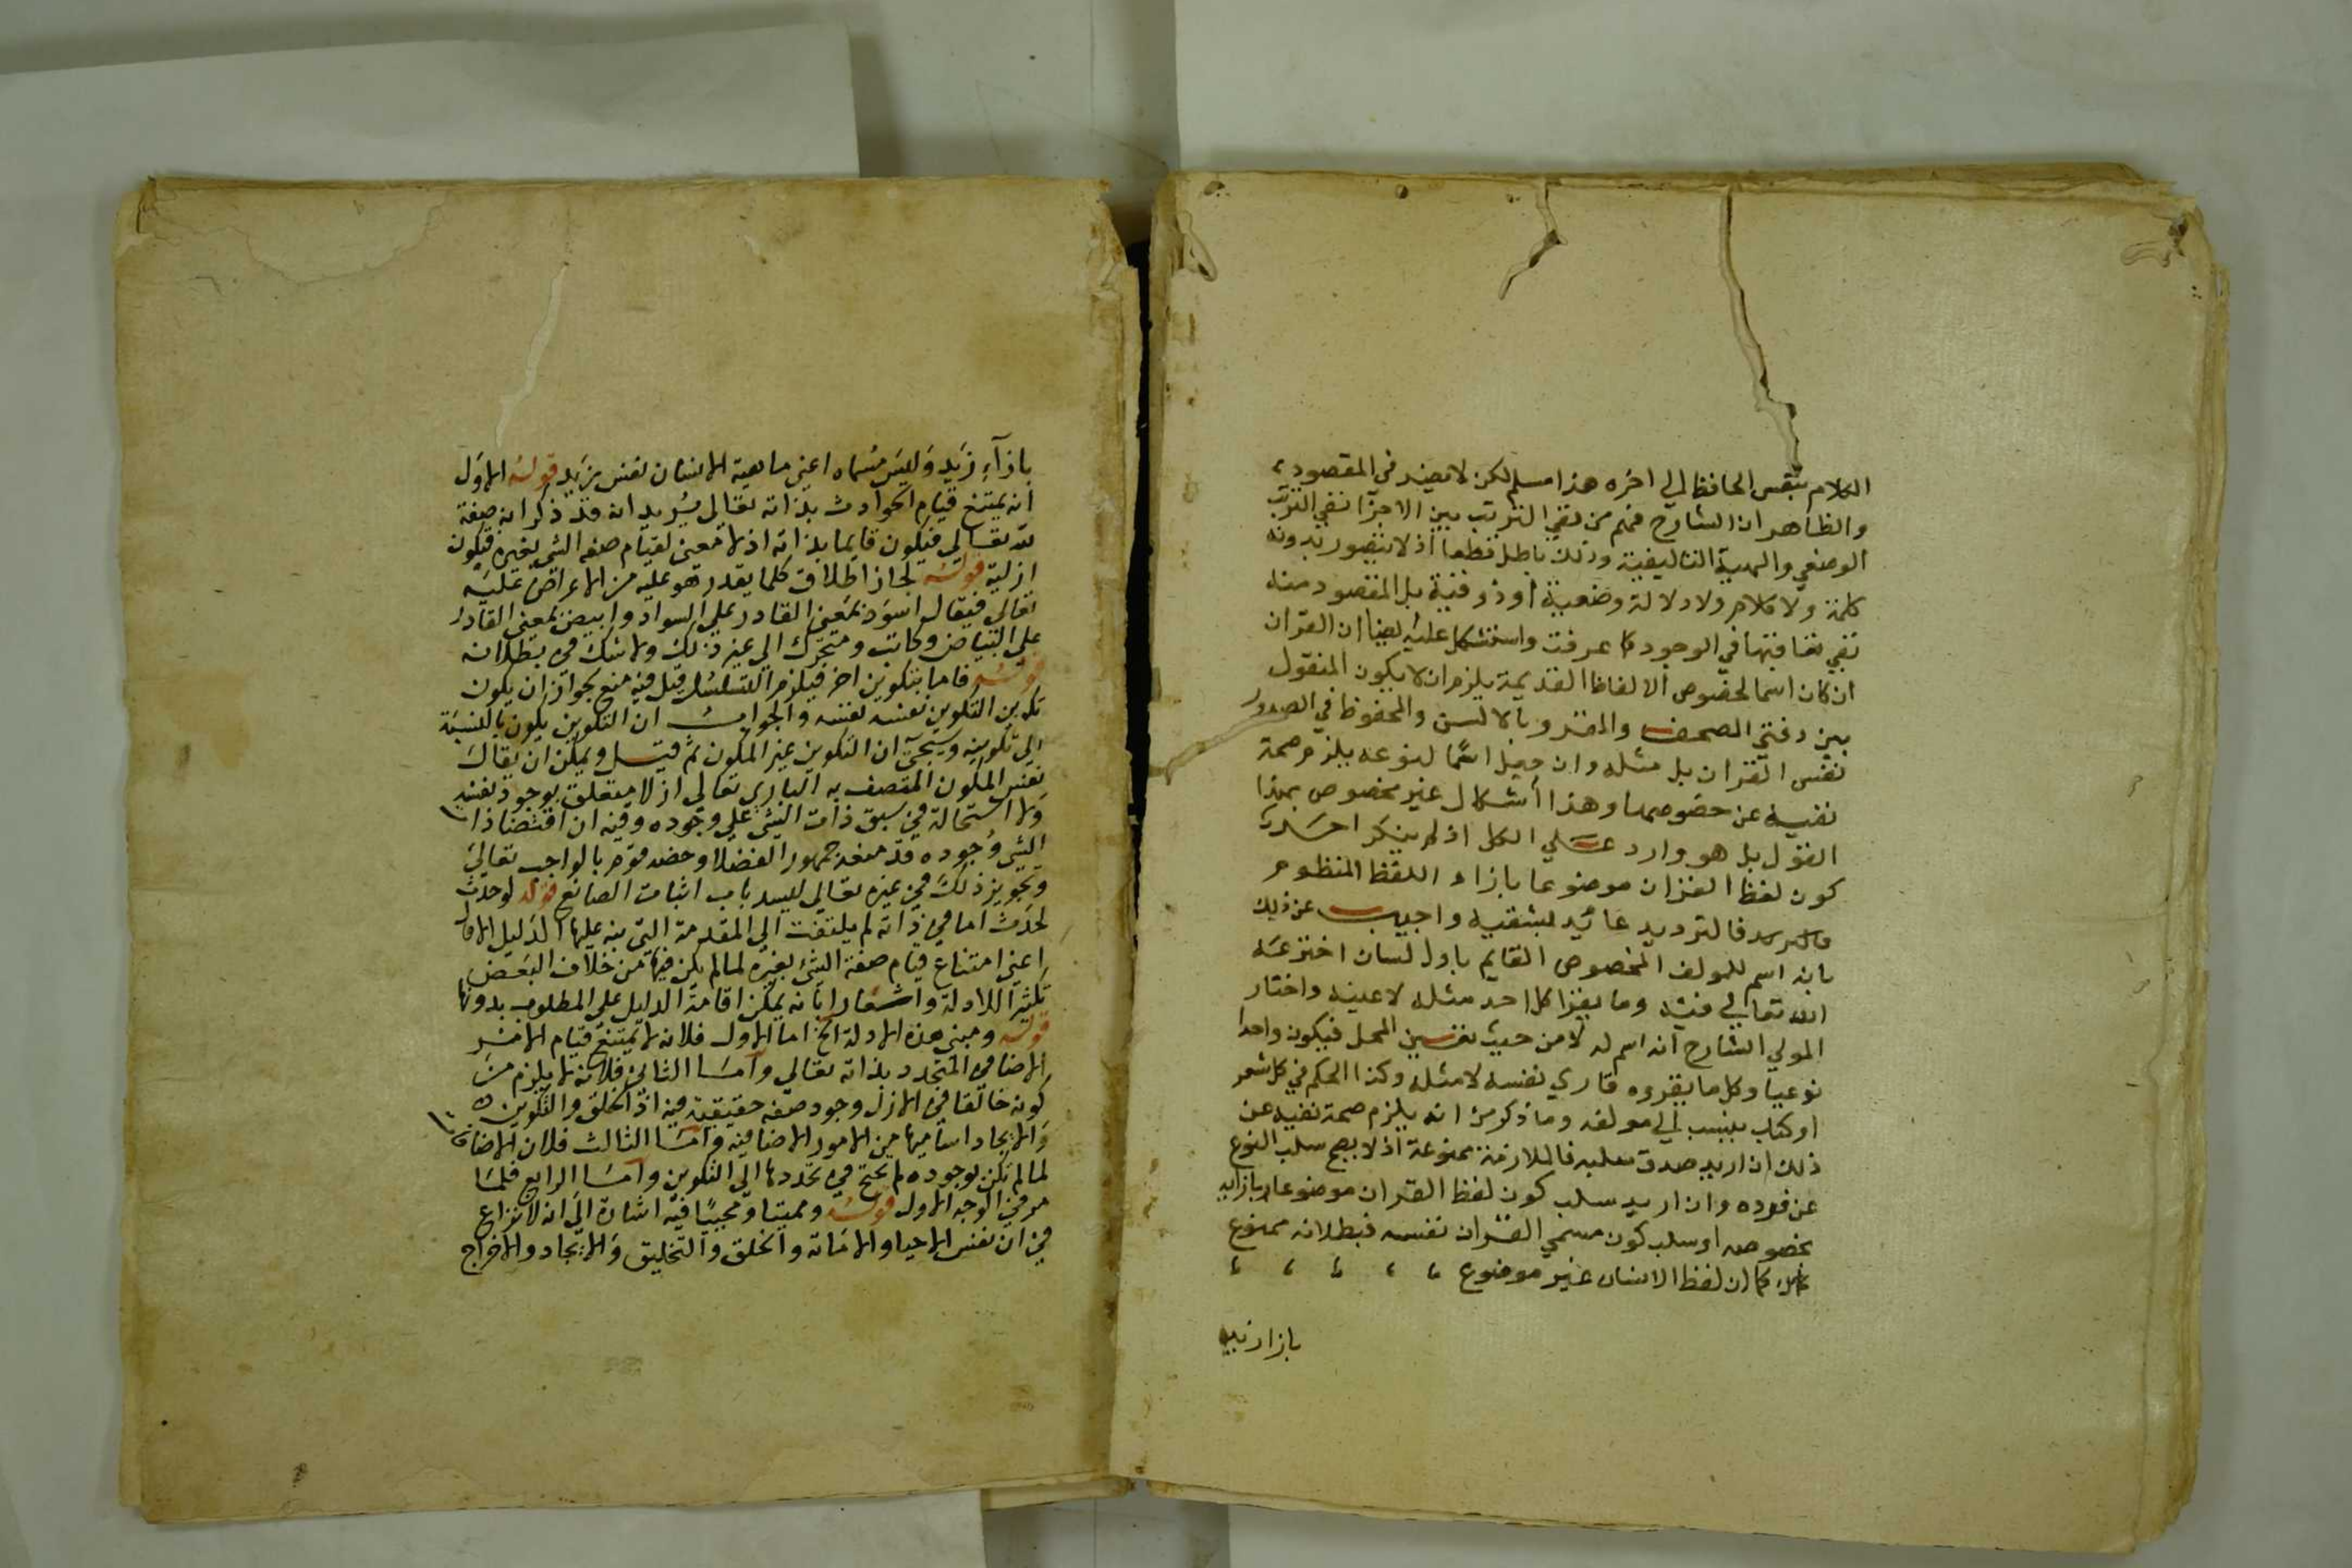 الكلام بنفس الحافظ الي اخره هذا مسلم لكن لا يفيد في المقصود
والظاهر ان الشارح فهم من نفي الترتب بين الاجزآ نفي الترتب
الوضعي والهيية التاليفية وذلك باطل قطعا اذ لا يتصور بدونه
كلمة ولا كلام ولا دلالة وضعية او ذوقية بل المقصود منه
نفي تعاقبها في الوجود كما عرفت واستشكل عليه ايضا ان القران
ان كان اسما لخصوص الالفاظ القديمة يلزم ان لا يكون المنقول
بين دفتي الصحف والمقرو بالالسن والمحفوظ في الصدور
نفس القران بل مثله وان جعل اسما لنوعه يلزم صحة
نفيه عن خصوصها وهذا أشكال غير مخصوص بهذا
القول بل هو وارد علي الكل اذ لم ينكر احد
كون لفظ القران موضوعا بازاء اللفظ المنظوم
فالترديد عائد بشقيه واجيب عن ذلك
بانه اسم للمولف المخصوص القايم باول لسان اخترعه
الله تعالي فيه وما يقرا كل احد مثله لا عينه واختار
المولي الشارح انه اسم له لا من حيث تعيين المحل فيكون واحدا
نوعيا وكل ما يقروه قاري نفسه لا مثله وكذا الحكم في كل شعر
او كتاب ينسب الي مولفه وما ذكر من انه يلزم صحة نفيه عن
ذلك ان اريد صدق سلبه فالملازمة ممنوعة اذ لا يصح سلب النوع
عن فرده وان اريد سلب كون لفظ القران موضوعا بازايه
بخصوصه او سلب كون مسمي القران نفسه فبطلانه ممنوع
كما ان لفظ الانسان غير موضوع
بازا زيد
بازآء زيد وليس مسماه اعني ماهية الانسان نفس زيد قوله الاول
انه يمتنع قيام الحوادث بذاته تعالي يريد انه قد ذكر انه صفة
لله تعالي فيكون قايما بذاته اذ لا معني لقيام صفة الشي بغيره فيكون
ازلية قوله لجاز اطلاق كلما يقدر هو عليه من الاعراض عليه
تعالي فيقال اسود بمعني القادر علي السواد وابيض بمعني القادر
علي البياض وكاتب ومتحرك الي غير ذلك ولا شك في بطلانه
قوله فاما بتكوين اخر فيلزم التسلسل قيل فيه منع لجواز ان يكون
تكوين التكوين نفسه نفسه والجواب ان التكوين يكون بالنسبة
الي تكوينه وسيجيء ان التكوين غير المكون ثم قيل ويمكن ان يقال
نفس المكون المتصف به الباري تعالي ازلا متعلق بوجود نفسه
ولا استحالة في سبق ذات الشي علي وجوده وفيه ان اقتضا ذات
الشي وجوده قد منعه جمهور الفضلا وخصه قوم بالواجب تعالي
وتجويز ذلك في غيره تعالي ليسد باب اثبات الصانع قوله لو حدث
لحدث اما في ذاته لم يلتفت الي المقدمة التي بنه عليها الدليل الاول
اعني امتناع قيام صفة الشي بغيره لما لم يكن فيها من خلاف البعض
تكثيرا للادلة واشعارا بانه يمكن اقامة الدليل علي المطلوب بدونها
قوله ومبني هذه الادلة الخ اما الاول فلانه لا يمتنع قيام الامر
الاضافي المتجدد بذاته تعالي وآما الثاني فلانه لا يلزم من
كونه خالقا في الازل وجود صفة حقيقية فيه اذ الخلق والتكوين
والايجاد اسآميها من الامور الاضافية وآما الثالث فلان الاضافات
لما لم تكن بوجوده لم يحتج في تجددها الي التكوين وآما الرابع فلما
مر في الوجه الاول قوله ومميتا ومحييا فيه اشارة الي انه لا نزاع
في ان نفس الاحيا والاماتة والخلق والتخليق والايجاد والاخراج